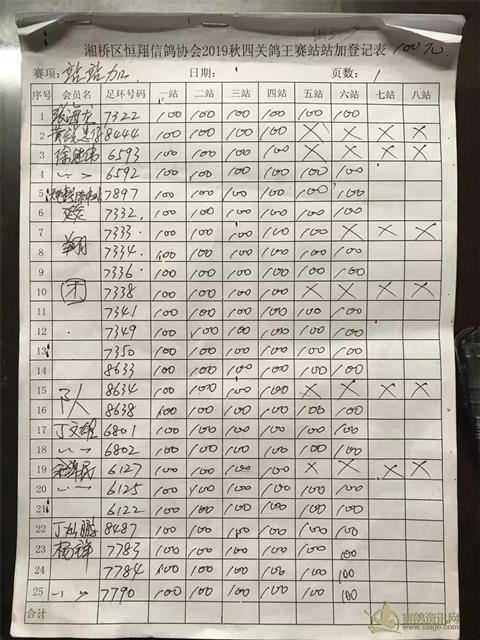 湘桥区恒翔信鸽协会2019秋四关鸽王赛站站加登记表 100元
赛项: 站站加 日期: 页数: 1
序号 会员名 足环号码 一站 二站 三站 四站 五站 六站 七站 八站
1 张海龙 7322 100 100 100 100 100 100
2 8444 100 100 100 100 X X X X
3 6593 100 100 100 100 X X X X
4 〃 〃 6592 100 100 100 100 100 100
5 7897 100 100 100 100 100 100
6 7332 100 100 100 100 100 100
7 翔 7333 100 100 100 100 100 X X X
8 7334 100 100 100 100 100 100
9 7336 100 100 100 100 100 100
10 7338 100 100 100 100 X X X X
11 7341 100 100 100 100 100 100
12 7349 100 100 100 100 100 100
13 7350 100 100 100 100 100 100
14 8633 100 100 100 100 100 100
15 队 8634 100 100 100 100 X X X X
16 8638 100 100 100 100 100 100
17 丁文雄 6801 100 100 100 100 100 100
18 〃 〃 6802 100 100 100 100 100 100
19 6127 100 100 100 100 X X X X
20 〃 〃 6125 100 100 100 100 100 100
21 6122 100 100 100 100 100 100
22 8487 100 100 100 100 100 100
23 杨锋 7783 100 100 100 100 100 100
24 7784 100 100 100 100 100 100
25 〃 〃 7790 100 100 100 100 100 100
合计
赛鸽资讯网
www.saige.com